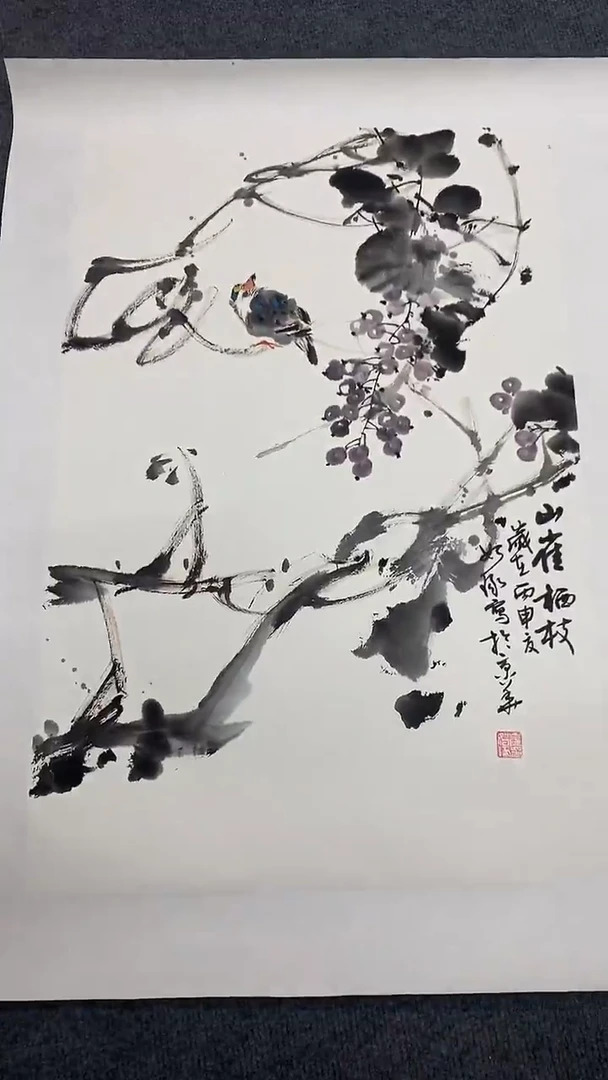 山雀栖枝
歲在丙申夏
写於京华